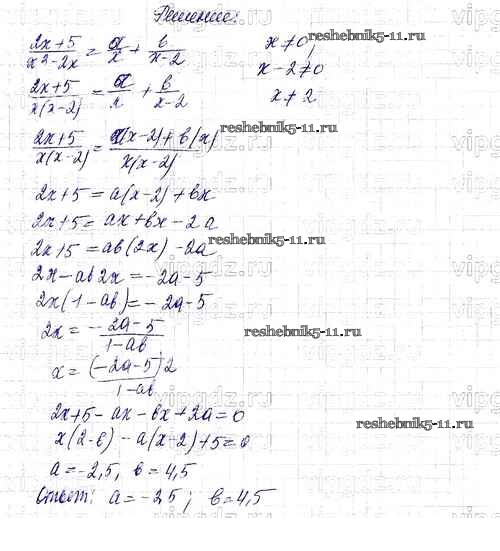 Решение:
(2x+5)/(x²-2x) = a/x + b/(x-2)    x≠0,
x-2≠0
(2x+5)/(x(x-2)) = a/x + b/(x-2)    x≠2
reshebnik5-11.ru
(2x+5)/(x(x-2)) = (a(x-2)+b(x))/(x(x-2))
reshebnik5-11.ru
2x+5=a(x-2)+bx
2x+5=ax+bx-2a
reshebnik5-11.ru
2x+5=ab(2x)-2a
2x-ab2x=-2a-5
2x(1-ab)=-2a-5
2x = (-2a-5)/(1-ab)
reshebnik5-11.ru
x = (-2a-5)2/(1-ab)
2x+5-ax-bx+2a=0
reshebnik5-11.ru
x(2-b)-a(x-2)+5=0
a=-2,5, b=4,5
Ответ: a=-2,5; b=4,5
reshebnik5-11.ru
vipgdz.ru